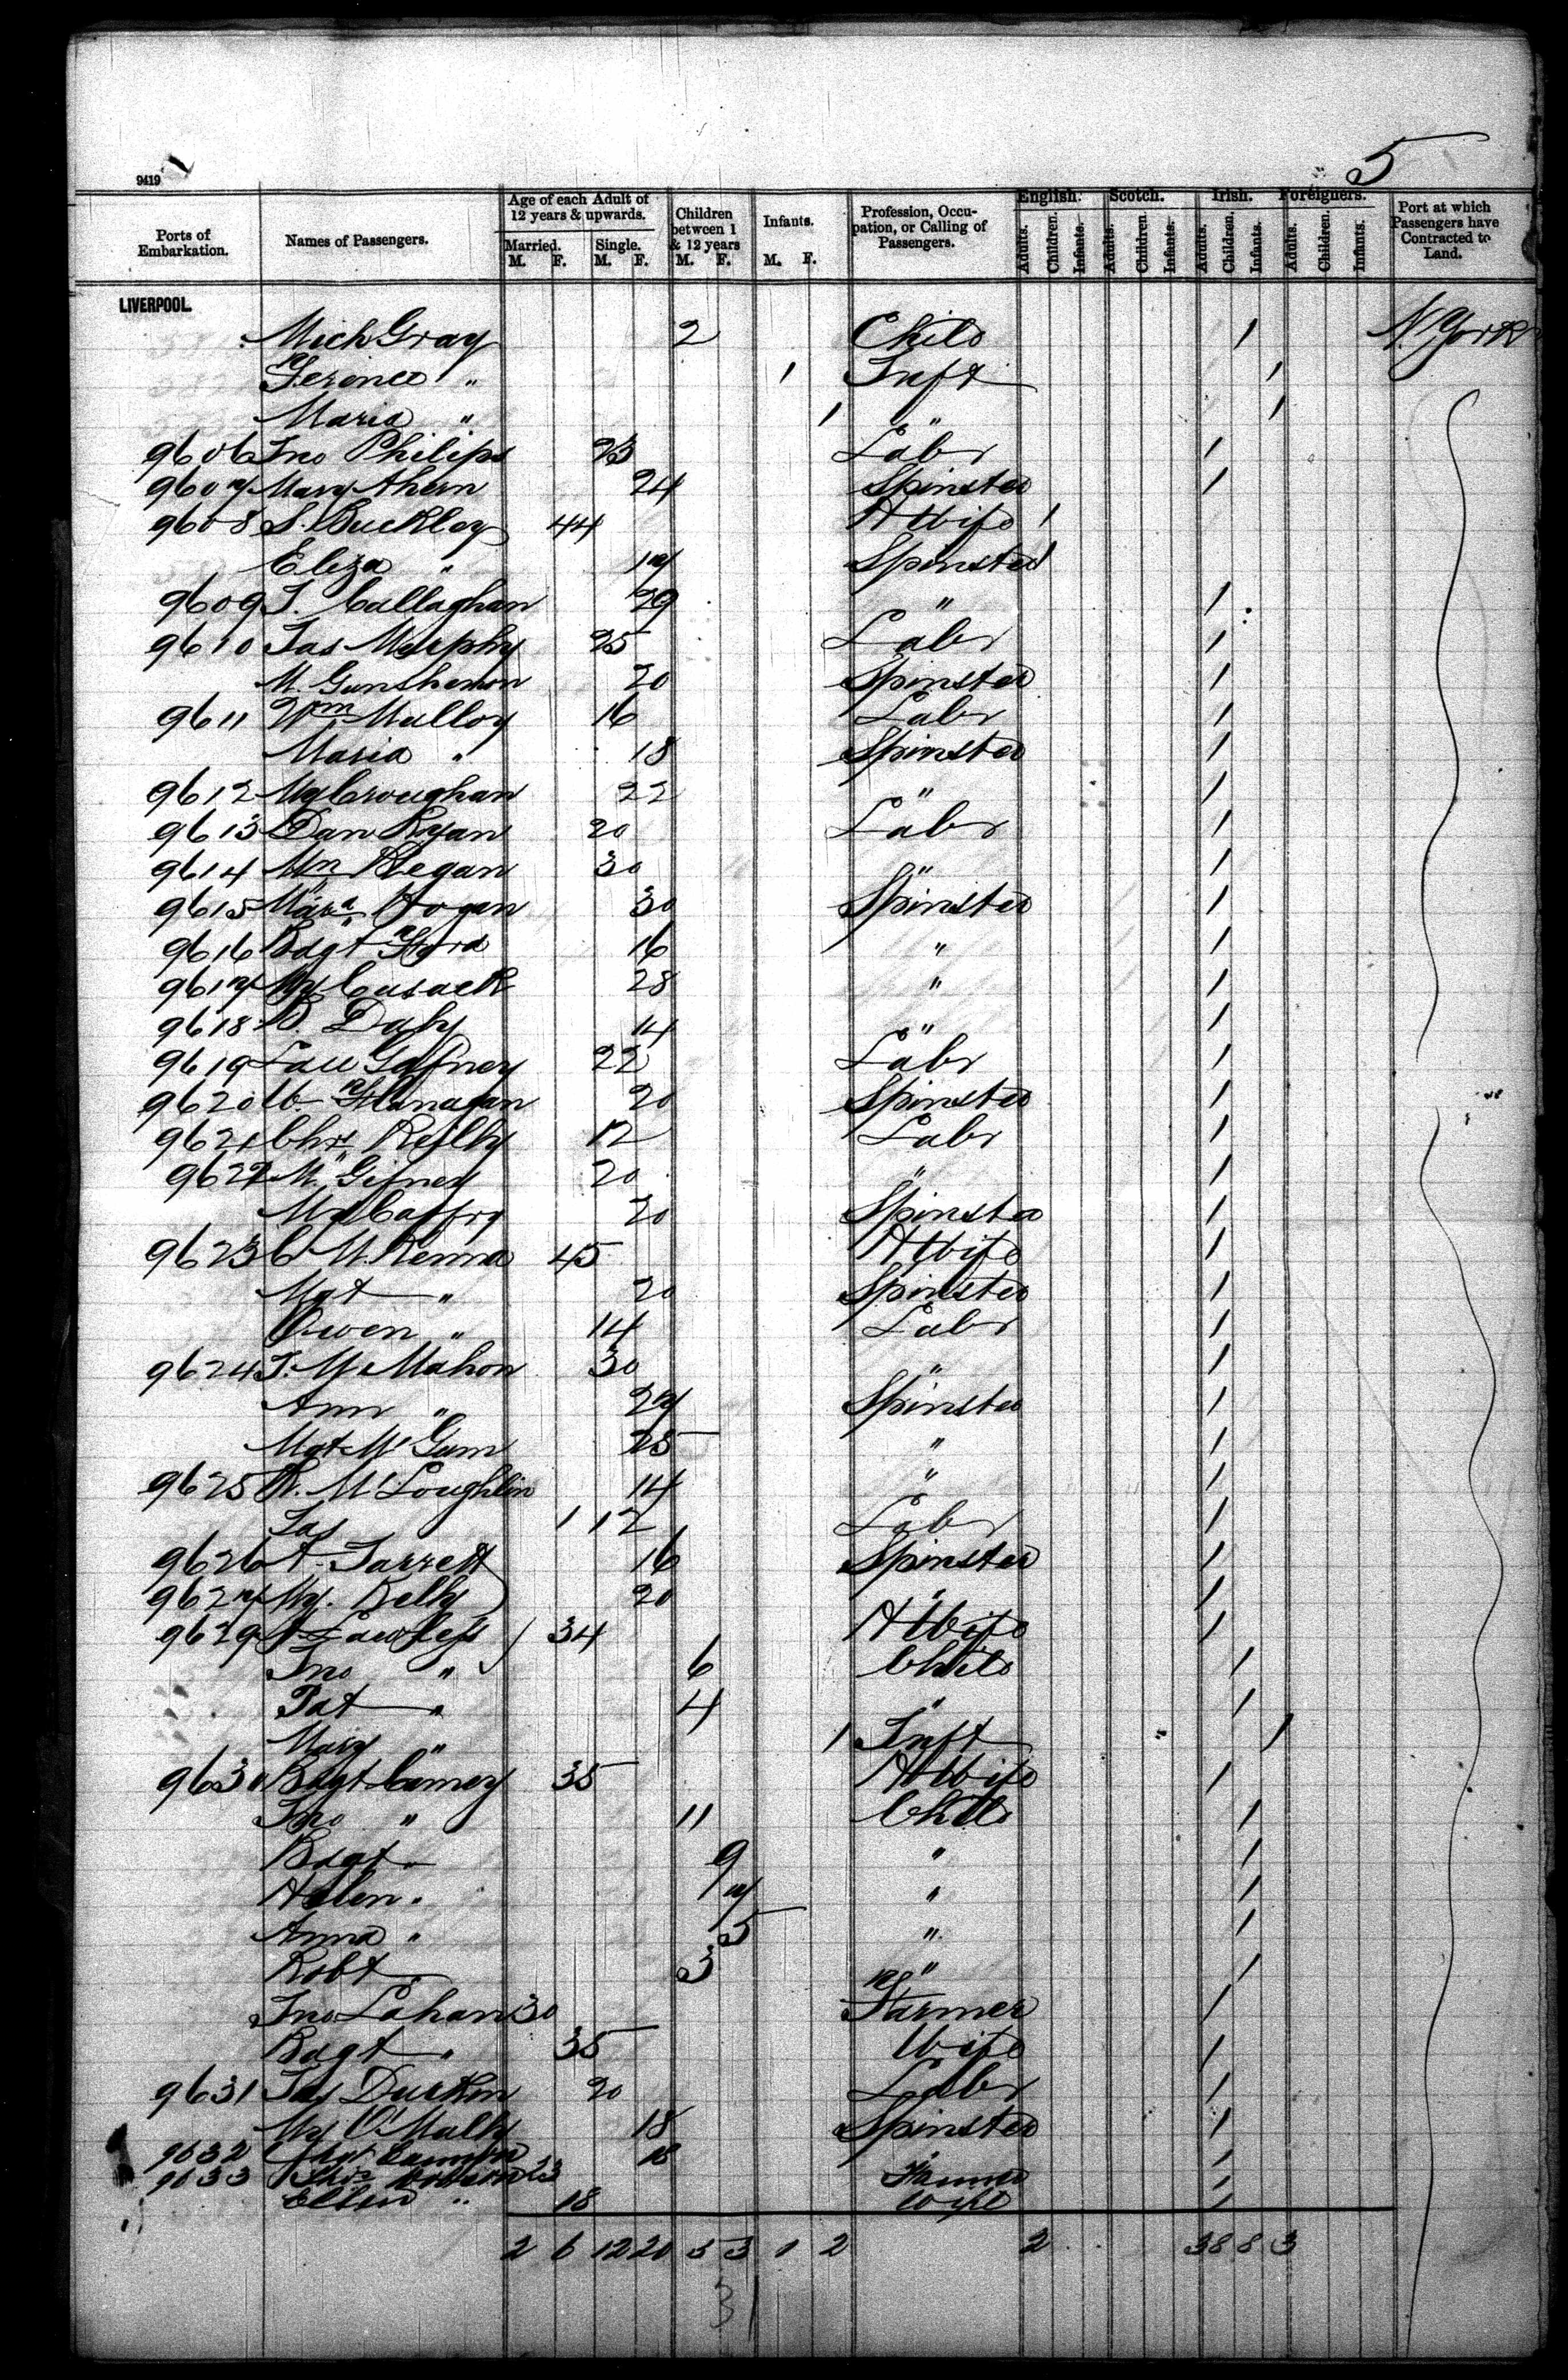 5
9419
Ports of Embarkation. Names of Passengers. Age of each Adult of 12 years & upwards. Married. M. F. Single. M. F. Children between 1 & 12 years M. F. Infants. M. F. Profession, Occupation, or Calling of Passengers. English. Adults. Children. Infants. Scotch. Adults. Children. Infants. Irish. Adults. Children. Infants. Foreigners. Adults. Children. Infants. Port at which Passengers have Contracted to Land.
LIVERPOOL.
Mich Gray 2 Child 1 N. York
Terence " 1 Inft 1
Maria " 1 " 1
9606 Jno Philips 23 Labr 1
9607 Mary Ahern 24 Spinster 1
9608 S. Buckley 44 H Wife 1
Eliza " 17 Spinster 1
9609 J. Callaghan 29 " 1
9610 Jas Murphy 25 Labr 1
M. 20 Spinster 1
9611 Wm Mulloy 16 Labr 1
Maria " 18 Spinster 1
9612 My Croughan 22 " 1
9613 Dan Ryan 20 Labr 1
9614 Mn Regan 30 " 1
9615 Mara Hogan 30 Spinster 1
9616 Bdgt Ford 16 " 1
9617 My Cusack 28 " 1
9618 Daly 14 " 1
9619 Law Gafney 22 Labr 1
9620 Flanagan 20 Spinster 1
9621 Chrs Reilly 12 Labr 1
9622 M. Gifney 20 " 1
My Caffry 20 Spinster 1
9623 C McKenna 45 H Wife 1
Mgt " 20 Spinster 1
Owen " 14 Labr 1
9624 J. McMahon 30 " 1
Ann " 27 Spinster 1
Mgt Mc 25 " 1
9625 R. McLoughlin 14 " 1
Jas 1 12 Labr 1
9626 A. Jarrett 16 Spinster 1
9627 My. Kelly 20 " 1
9629 Lawless 34 H Wife 1
Jno " 6 Child 1
Pat " 4 " 1
Mary " 1 Inft 1
9630 Bdgt 35 H Wife 1
Jno " 11 Child 1
Bdgt " 9 " 1
Helen " 7 " 1
Anna " 5 " 1
Robt " 3 " 1
Jno Lahan 30 Farmer 1
Bdgt " 35 Wife 1
9631 Jas Durkin 20 Labr 1
My O'Mally 18 Spinster 1
9632 Mgt 18 1
9633 Thos 23 Farmer 1
Ellen " 18 Wife 1
2 6 12 20 5 3 1 2 2 38 8 3
31